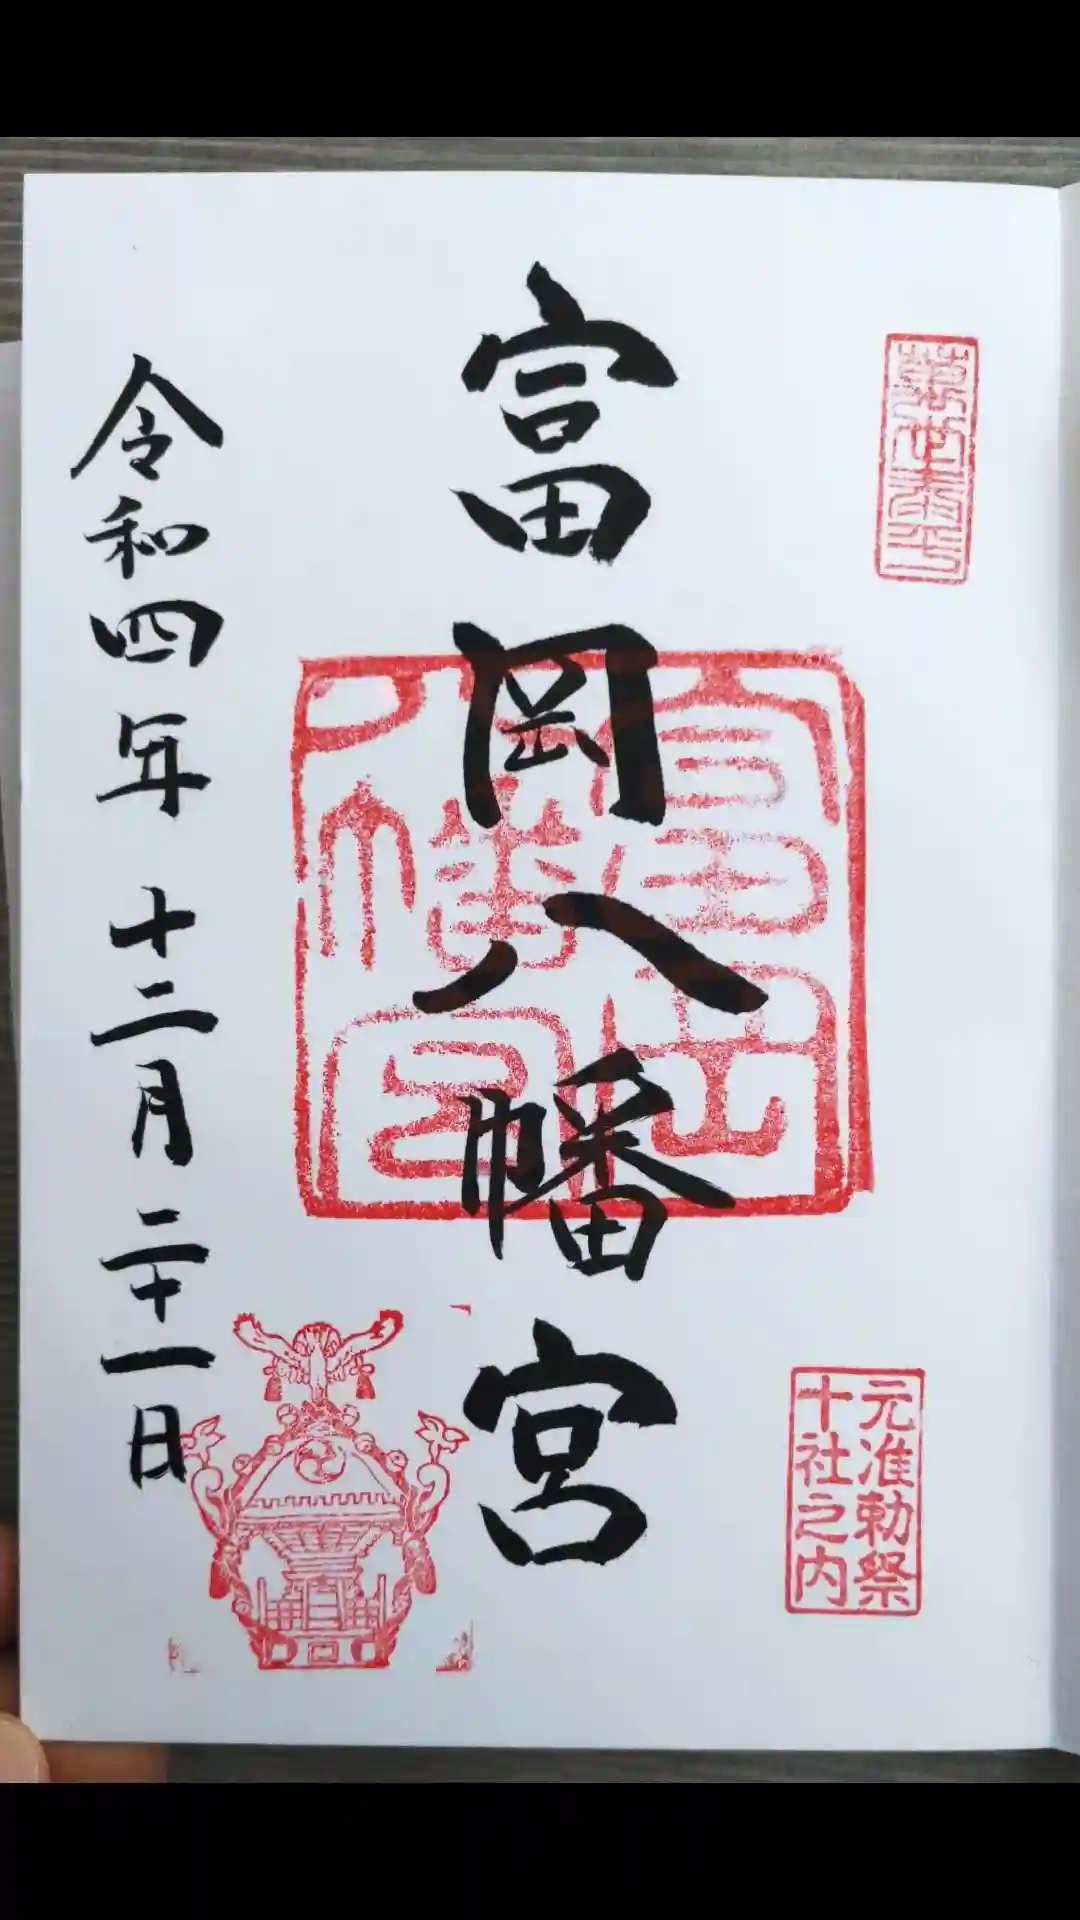 富岡八幡宮
元准勅祭
十社之内
富岡
八幡宮
令和四年 十二月 二十一日